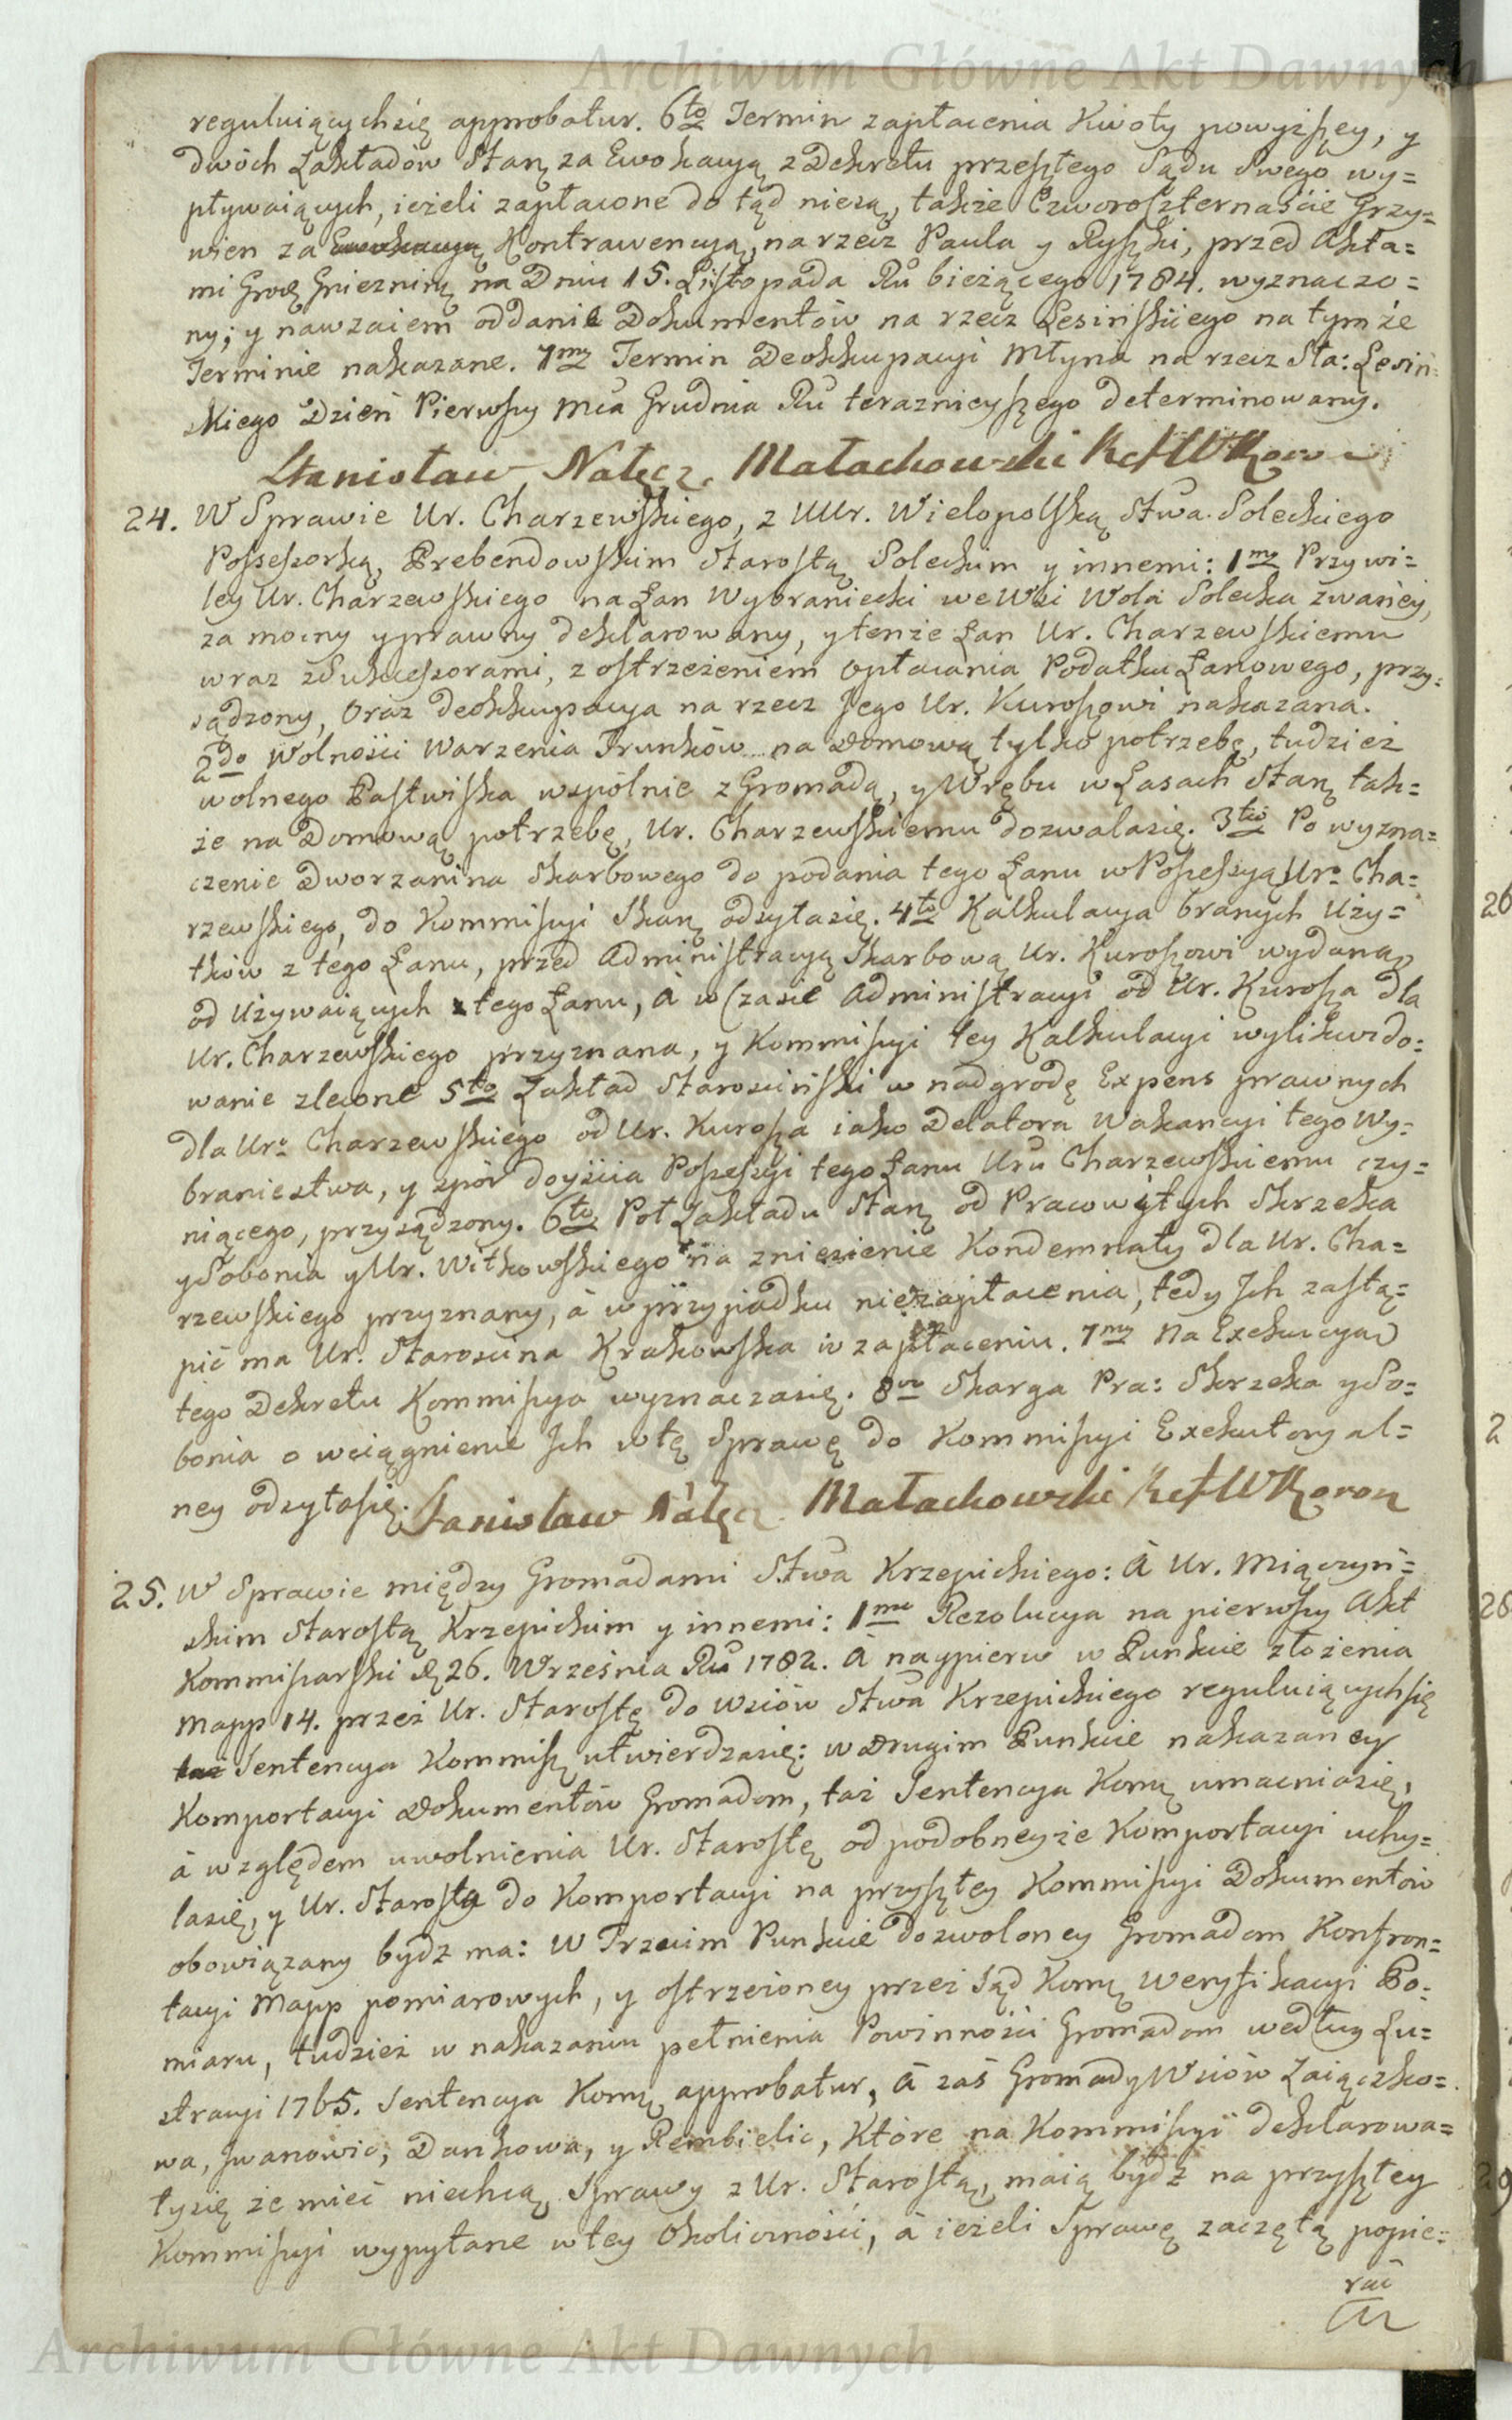 Archiwum Główne Akt Dawnych
reguluiących się approbatur. 6to Termin zapłacenia Kwoty powyższey, y
dwóch Zakładów Stan: za Ewokacyą z Dekretu przeszłego Sądu Swego wy=
pływaiących, ieżeli zapłacone do tąd niesą, także Czworo Czternaście Grzy=
wien za Ewokacyą Kontrawencyą, na rzecz Paula y Ryszki, przed Akta=
mi Grod: Gnieznin: na Dniu 15. Listopada Ru bieżącego 1784. wyznaczo=
ny; y nawzaiem oddanie Dokumentów na rzecz Lesińskiego na tymże
Terminie nakazane. 7my Termin Deokkupacyi Młyna na rzecz Sta: Lesiń=
skiego Dzień Pierwszy Mca Grudnia Ru teraznieyszego determinowany.
Stanisław Nałęcz Małachowski RefWKoron
24. W Sprawie Ur. Charzewskiego, z UUr. Wielopolską Stwa. Soleckiego
Possessorką, Prebendowskim Starostą Soleckim y innemi: 1my Przywi=
ley Ur. Charzewskiego na Łan Wybraniecki we Wsi Wola Solecka zwaney,
za mocny y prawny deklarowany, y tenże Łan Ur. Charzewskiemu
wraz z Sukcessorami, z ostrzeżeniem opłacania Podatku Łanowego, przy=
sądzony, oraz deokkupacya na rzecz Jego Ur. Kuroszowi nakazana.
2do Wolności Warzenia Trunków na domową tylko potrzebę, tudzież
wolnego Pastwiska wspólnie z Gromadą, y Wrębu w Lasach Stan: tak=
że na Domową potrzebę, Ur. Charzewskiemu dozwala się. 3tio Po wyzna=
czenie Dworzanina Skarbowego do podania tego Łanu w Possessyą Ur: Cha=
rzewskiego, do Kommissyi Skar: odsyła się. 4to Kalkulacya branych Uży=
tków z tego Łanu, przed Administracyą Skarbową Ur. Kuroszowi wydaną,
od Używaiących z tego Łanu, à w czasie Administracyi od Ur. Kurosza dla
Ur. Charzewskiego przyznana, y Kommissyi tey Kalkulacyi wylikwido=
wanie zlecone 5to Zakład Starościński w nadgrodę Expens prawnych
dla Ur: Charzewskiego od Ur. Kurosza iako Delatora Wakancyi tego Wy=
braniectwa, y spór doyścia Possessyi tego Łanu Uru Charzewskiemu czy=
niącego, przysądzony. 6to Poł Zakładu Stan: od Pracowitych Skrzeka
y Sobonia y Ur. Witkowskiego na zniesienie Kondemnaty dla Ur. Cha=
rzewskiego przyznany, à w przypadku niezapłacenia, tedy Ich zastą=
pić ma Ur. Starościna Krakowska w zapłaceniu. 7my Na Exekucyą
tego Dekretu Kommissya wyznacza się. 8vo Skarga Pra: Skrzeka y So=
bonia o wciągnienie Ich w tę Sprawę do Kommissyi Exekutoryal=
ney odsyła się. Stanisław Nałęcz Małachowski RefWKoron
25. W Sprawie między Gromadami Stwa Krzepickiego: à Ur. Miączyń=
skim Starostą Krzepickim y innemi: 1mo Rezolucya na pierwszy Akt
Kommisarski d: 26. Września Ru 1782. à naypierw w Punkcie złożenia
Mapp 14. przez Ur. Starostę do wsiów Stwa Krzepickiego reguluiących się
taż Sentencya Kommis: utwierdza się: w drugim Punkcie nakazaney
Komportacyi Dokumentów Gromadom, taż Sentencya Kom: umacnia się,
à względem uwolnienia Ur. Starostę od podobneyże Komportacyi uchy=
la się, y Ur. Starosta do Komportacyi na przyszłey Kommissyi Dokumentów
obowiązany bydz ma: W Trzecim Punkcie dozwoloney Gromadom Konfron=
tacyi Mapp pomiarowych, y ostrzeżoney przez Sąd Kom: Weryfikacyi Po=
miaru, tudzież w nakazaniu pełnienia Powinności Gromadom według Lu=
stracyi 1765. Sentencya Kom: approbatur, à zaś Gromady Wsiów Zaiączko=
wa, Iwanowic, Dankowa, y Rembielic, które na Kommissyi deklarowa=
ły się że mieć niechcą Sprawy z Ur. Starostą, maią bydź na przyszłey
Kommissyi wypytane w tey Okoliczności, à ieżeli Sprawę zaczętą popie=
rać
Archiwum Główne Akt Dawnych